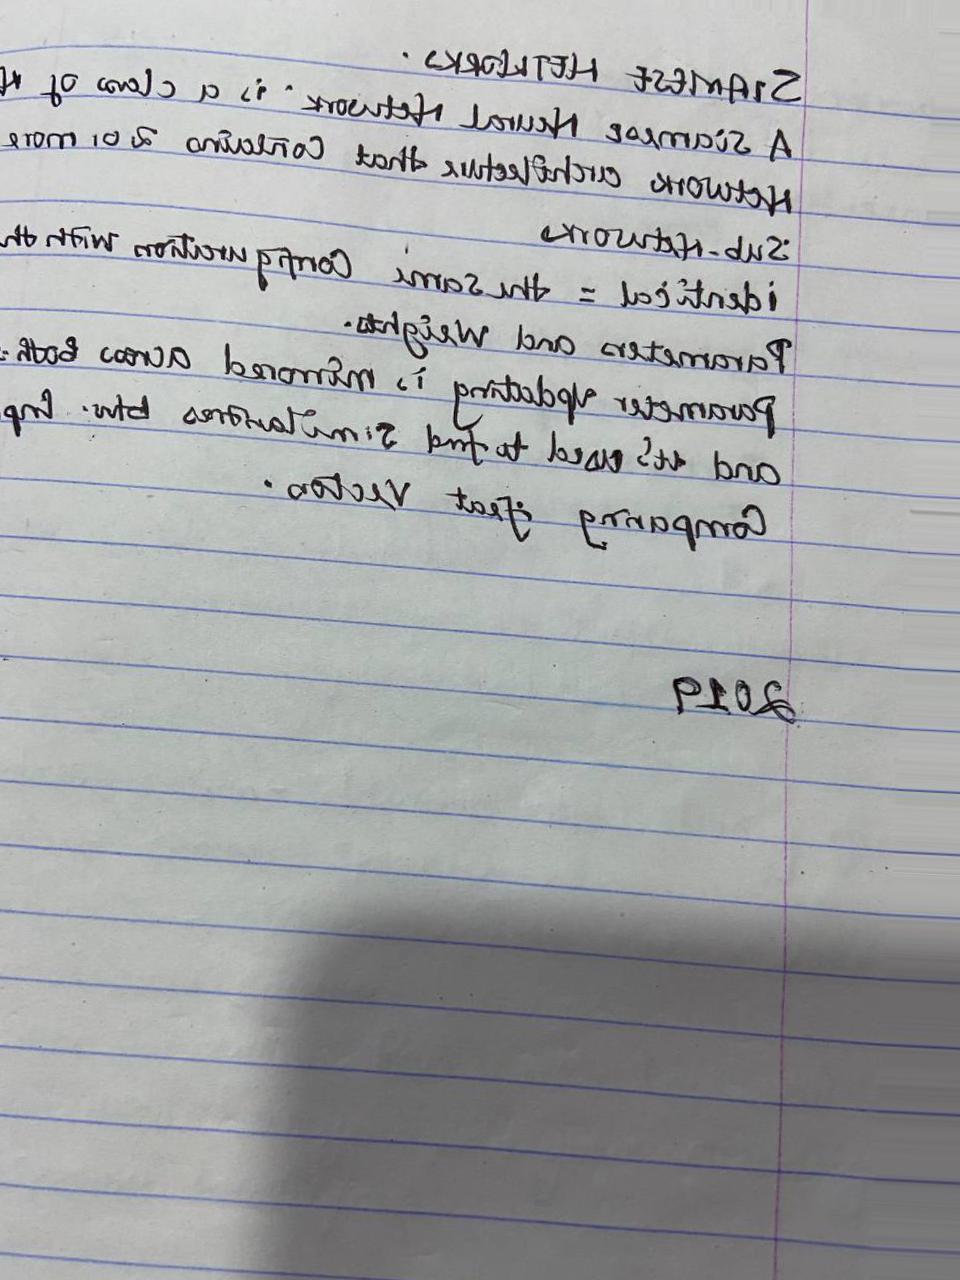 SIAMESE NETWORKS.
A Siamese Neural Network. is a class of
Network architecture that Contains 2 or more
Sub-Networks
identical = the same Configuration with th
Parameters and Weights.
parameter updating is mirrored across both
and it's used to find Similarities
Comparing feat Vectors.
2019